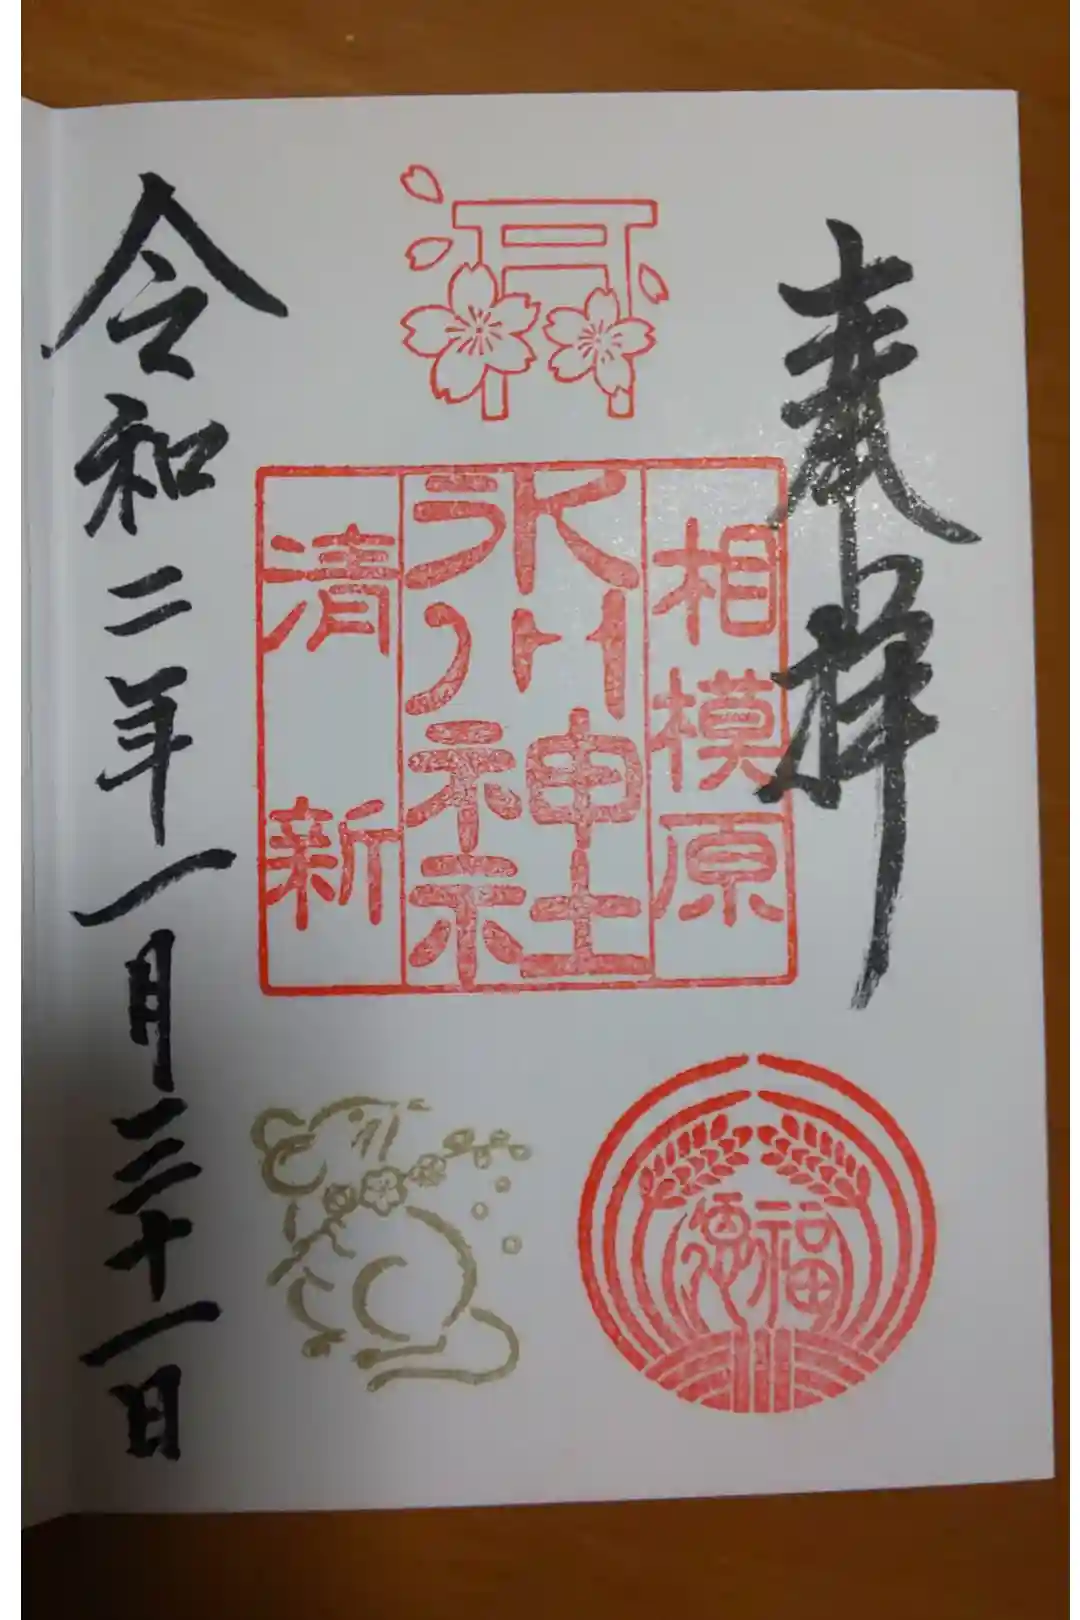 奉拝
相模原
氷川神社
清新
令和二年一月三十一日
福